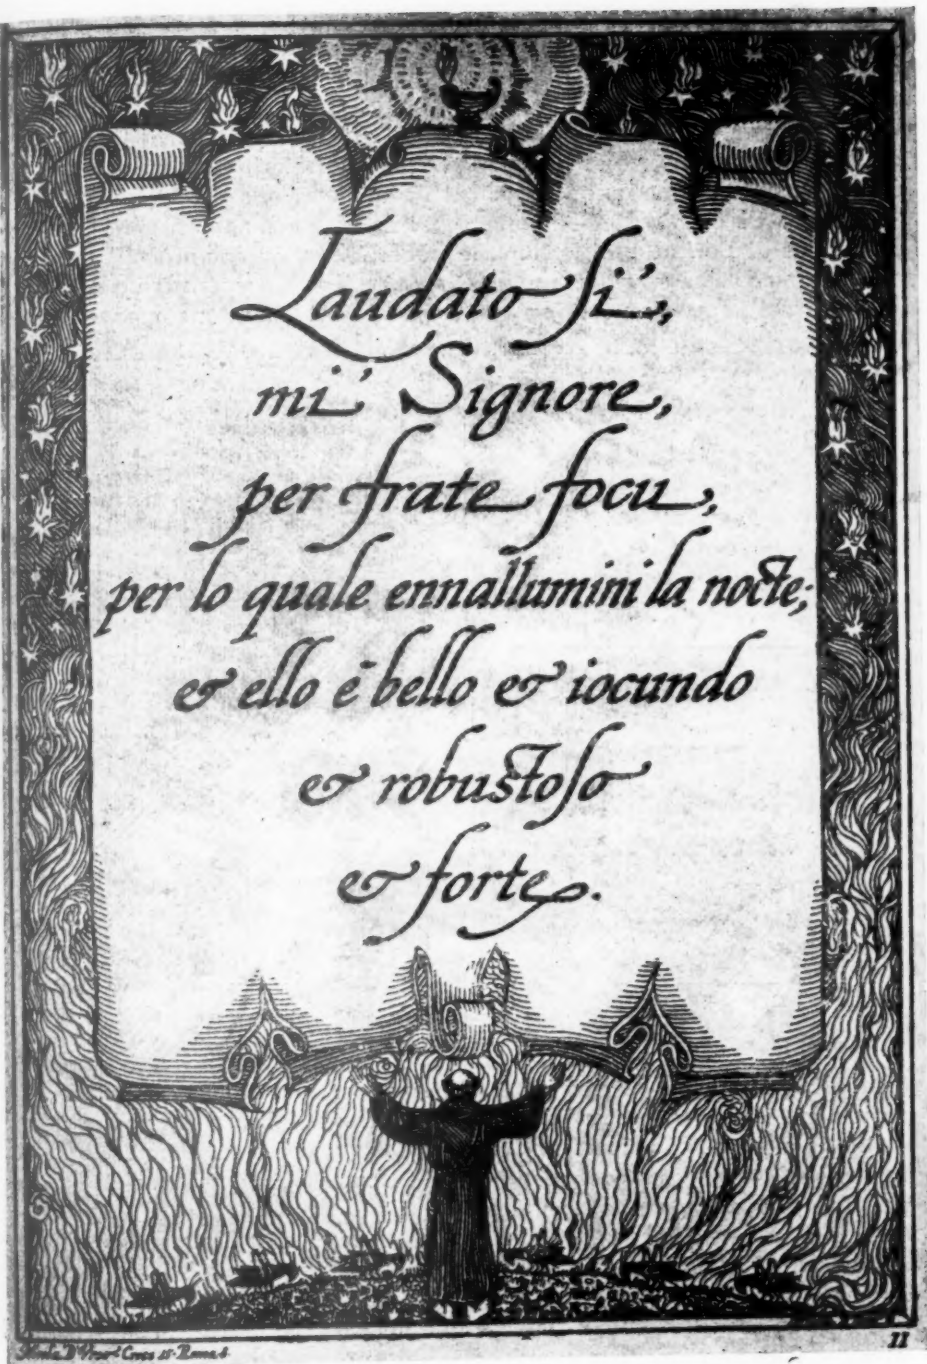 Laudato si',
mi' Signore,
per frate focu,
per lo quale ennallumini la nocte;
& ello è bello & iocundo
& robustoso
& forte.
II